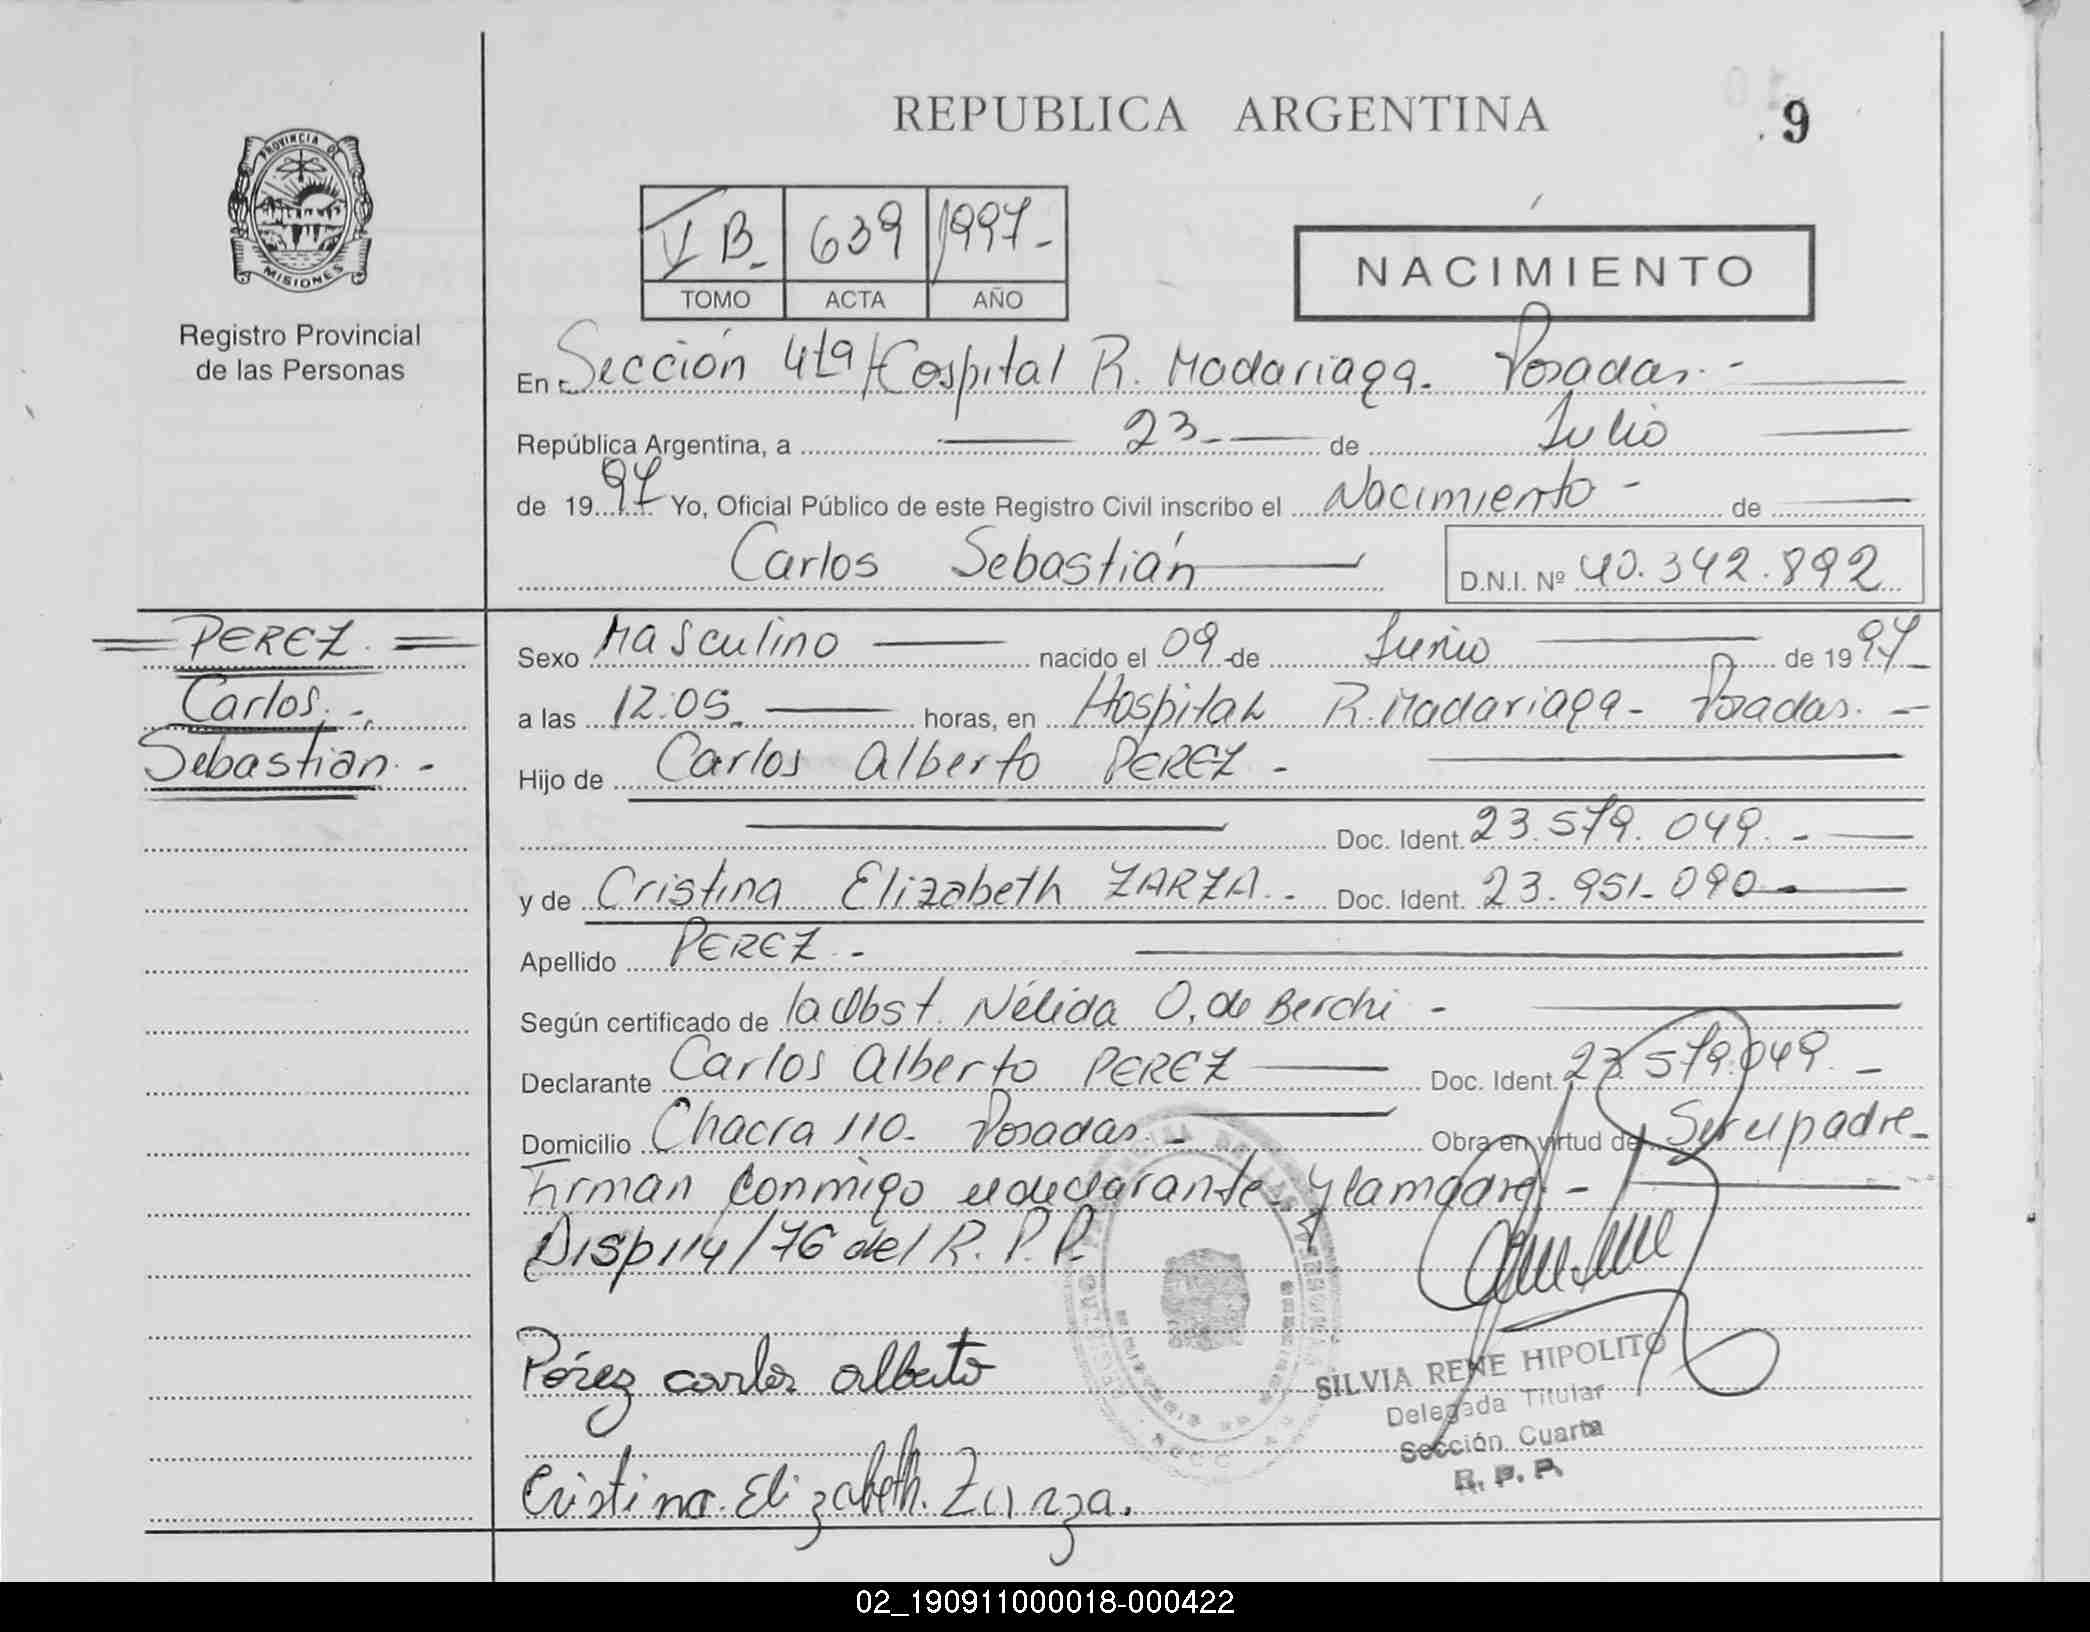 REPUBLICA ARGENTINA
9
PROVINCIA DE
MISIONES
Registro Provincial
de las Personas
V B. 639 1997-
TOMO ACTA AÑO
NACIMIENTO
En Sección 4ta Hospital R. Madariaga. Posadas.-
República Argentina, a 23- de Julio
de 1997 Yo, Oficial Público de este Registro Civil inscribo el Nacimiento - de
Carlos Sebastián D.N.I. Nº 40.342.892
PEREZ.
Carlos.-
Sebastian.-
Sexo Masculino nacido el 09 de Junio de 1997
a las 12:05. horas, en Hospital R. Madariaga- Posadas.-
Hijo de Carlos Alberto PEREZ -
Doc. Ident. 23.579.049.-
y de Cristina Elizabeth ZARZA.- Doc. Ident. 23.951.090-
Apellido PEREZ.-
Según certificado de la Obst. Nélida O. de Berchi -
Declarante Carlos Alberto PEREZ Doc. Ident. 23.579.049.-
Domicilio Chacra 110. Posadas.- Obra en virtud de Ser el padre-
Firman conmigo el declarante y la madre.-
Disp 114/76 del R.P.P.
Pérez carlos alberto
SILVIA RENE HIPOLITO
Delegada Titular
Sección Cuarta
R. P. P.
Cristina Elizabeth. Zarza.
02_190911000018-000422